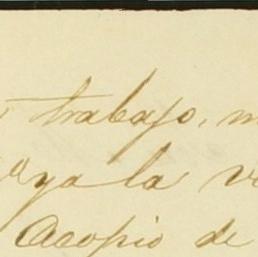 trabajo, m
ya la v
Acopio de